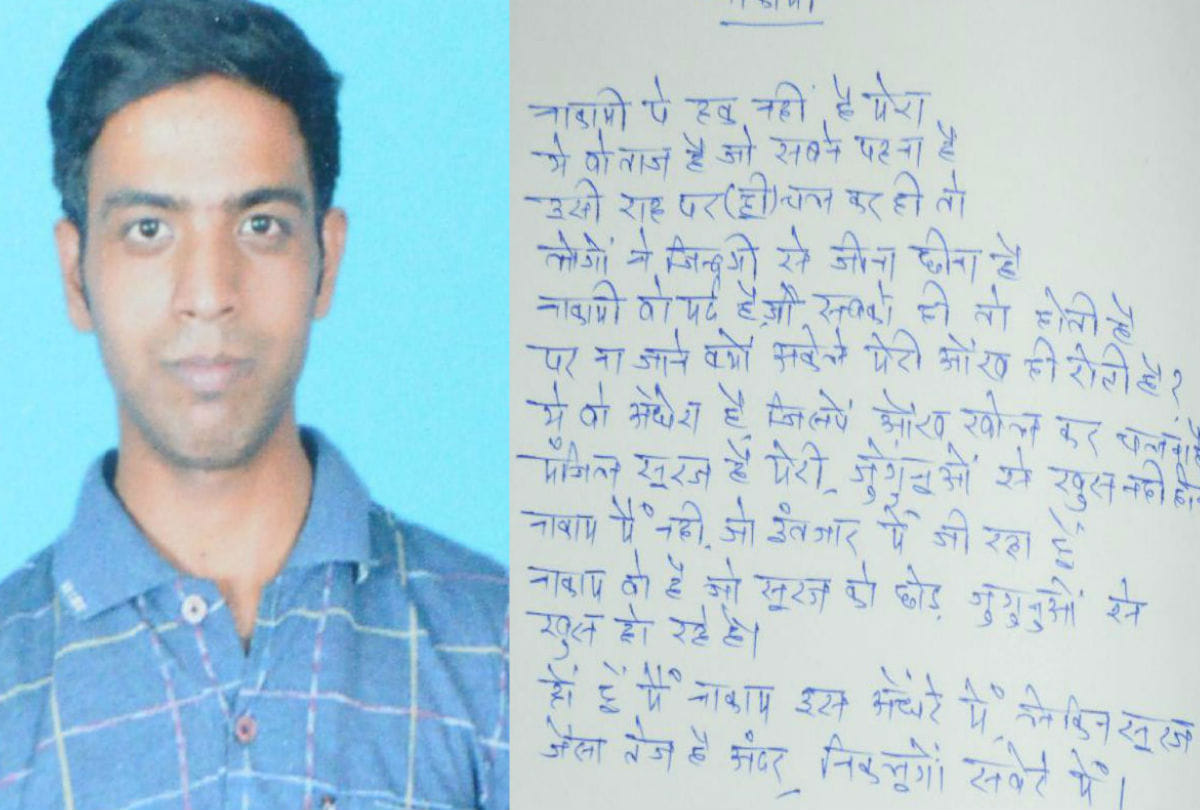 नाकामी
नाकामी पे हक नहीं है मेरा
ये वो ताज है जो सबने पहना है
उसी राह पर (ही) चल कर ही तो
लोगों ने जिन्दगी से जीना छीना है
नाकामी वो मर्द है, जो सबको ही तो होती है
पर ना जाने क्यों अकेले मेरी आँख ही रोती है?
ये वो अंधेरा है, जिसमें आँख खोल कर चलना है
मंजिल सूरज है मेरी, जुगुनूओं से खुस नही हो
नाकाम मैं नही, जो इंतजार में जी रहा हूँ
नाकाम वो है जो सूरज को छोड़ जुगुनुओं से
खुस हो रहे है।
हाँ हूँ मैं नाकाम इस अंधेरे में, लेकिन सूरज
जैसा तेज है अंदर, निकलूगां सवेरे में।